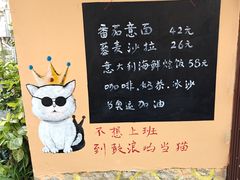 番茄意面 42元
藜麦沙拉 26元
意大利海鲜烩饭 58元
咖啡.奶茶.冰沙
为奥运加油
不想上班
到鼓浪屿当猫